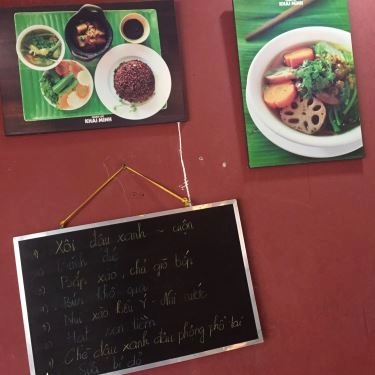 KHAI MINH
KHAI MINH
1) Xôi đậu xanh ~ cuộn
Bánh
Bắp xào, chả giò bắp
Bún khô qua
Nui xào kiểu Ý - Nui nước
Hạt sen
Chè đậu xanh đậu phộng phổ tai
Sữa bí đỏ